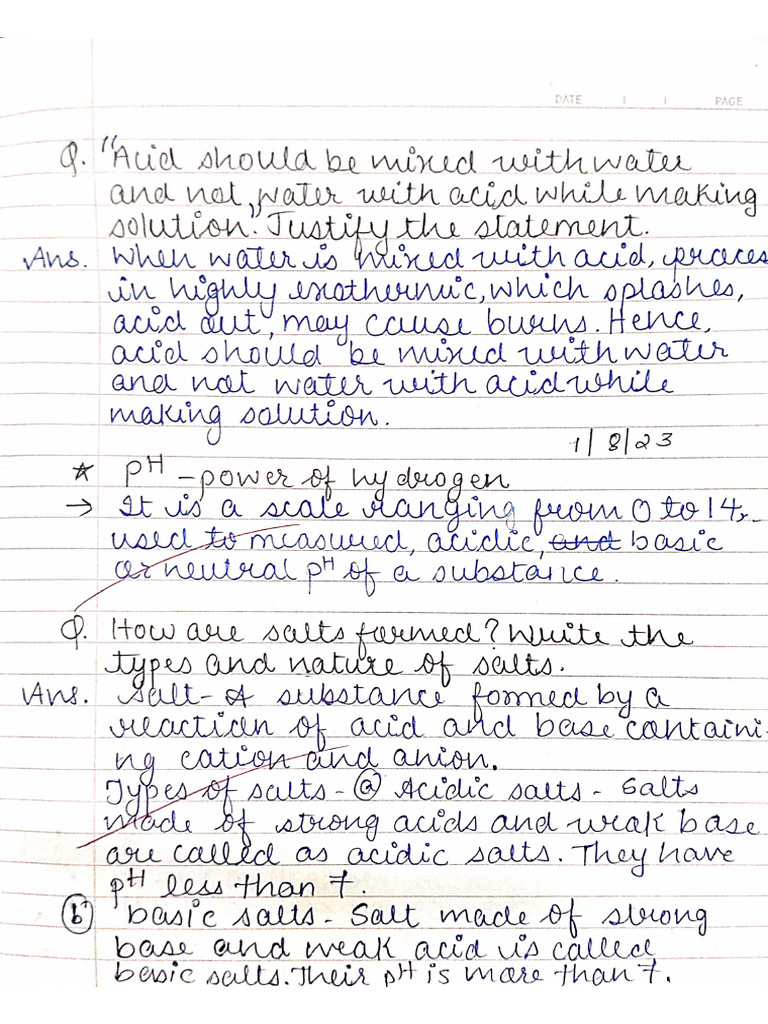 DATE / / PAGE
Q. "Acid should be mixed with water
and not water with acid while making
solution." Justify the statement.
Ans. When water is mixed with acid, proces
in highly exothermic, which splashes,
acid out, may cause burns. Hence,
acid should be mixed with water
and not water with acid while
making solution.
1/8/23
☆ pH - power of hydrogen
→ It is a scale ranging from 0 to 14,
used to measured, acidic, and basic
or neutral pH of a substance.
Q. How are salts formed? Write the
types and nature of salts.
Ans. Salt - A substance formed by a
reaction of acid and base containi-
ng cation and anion.
Types of salts - (a) Acidic salts - Salts
made of strong acids and weak base
are called as acidic salts. They have
pH less than 7.
(b) basic salts - Salt made of strong
base and weak acid is called
basic salts. Their pH is more than 7.